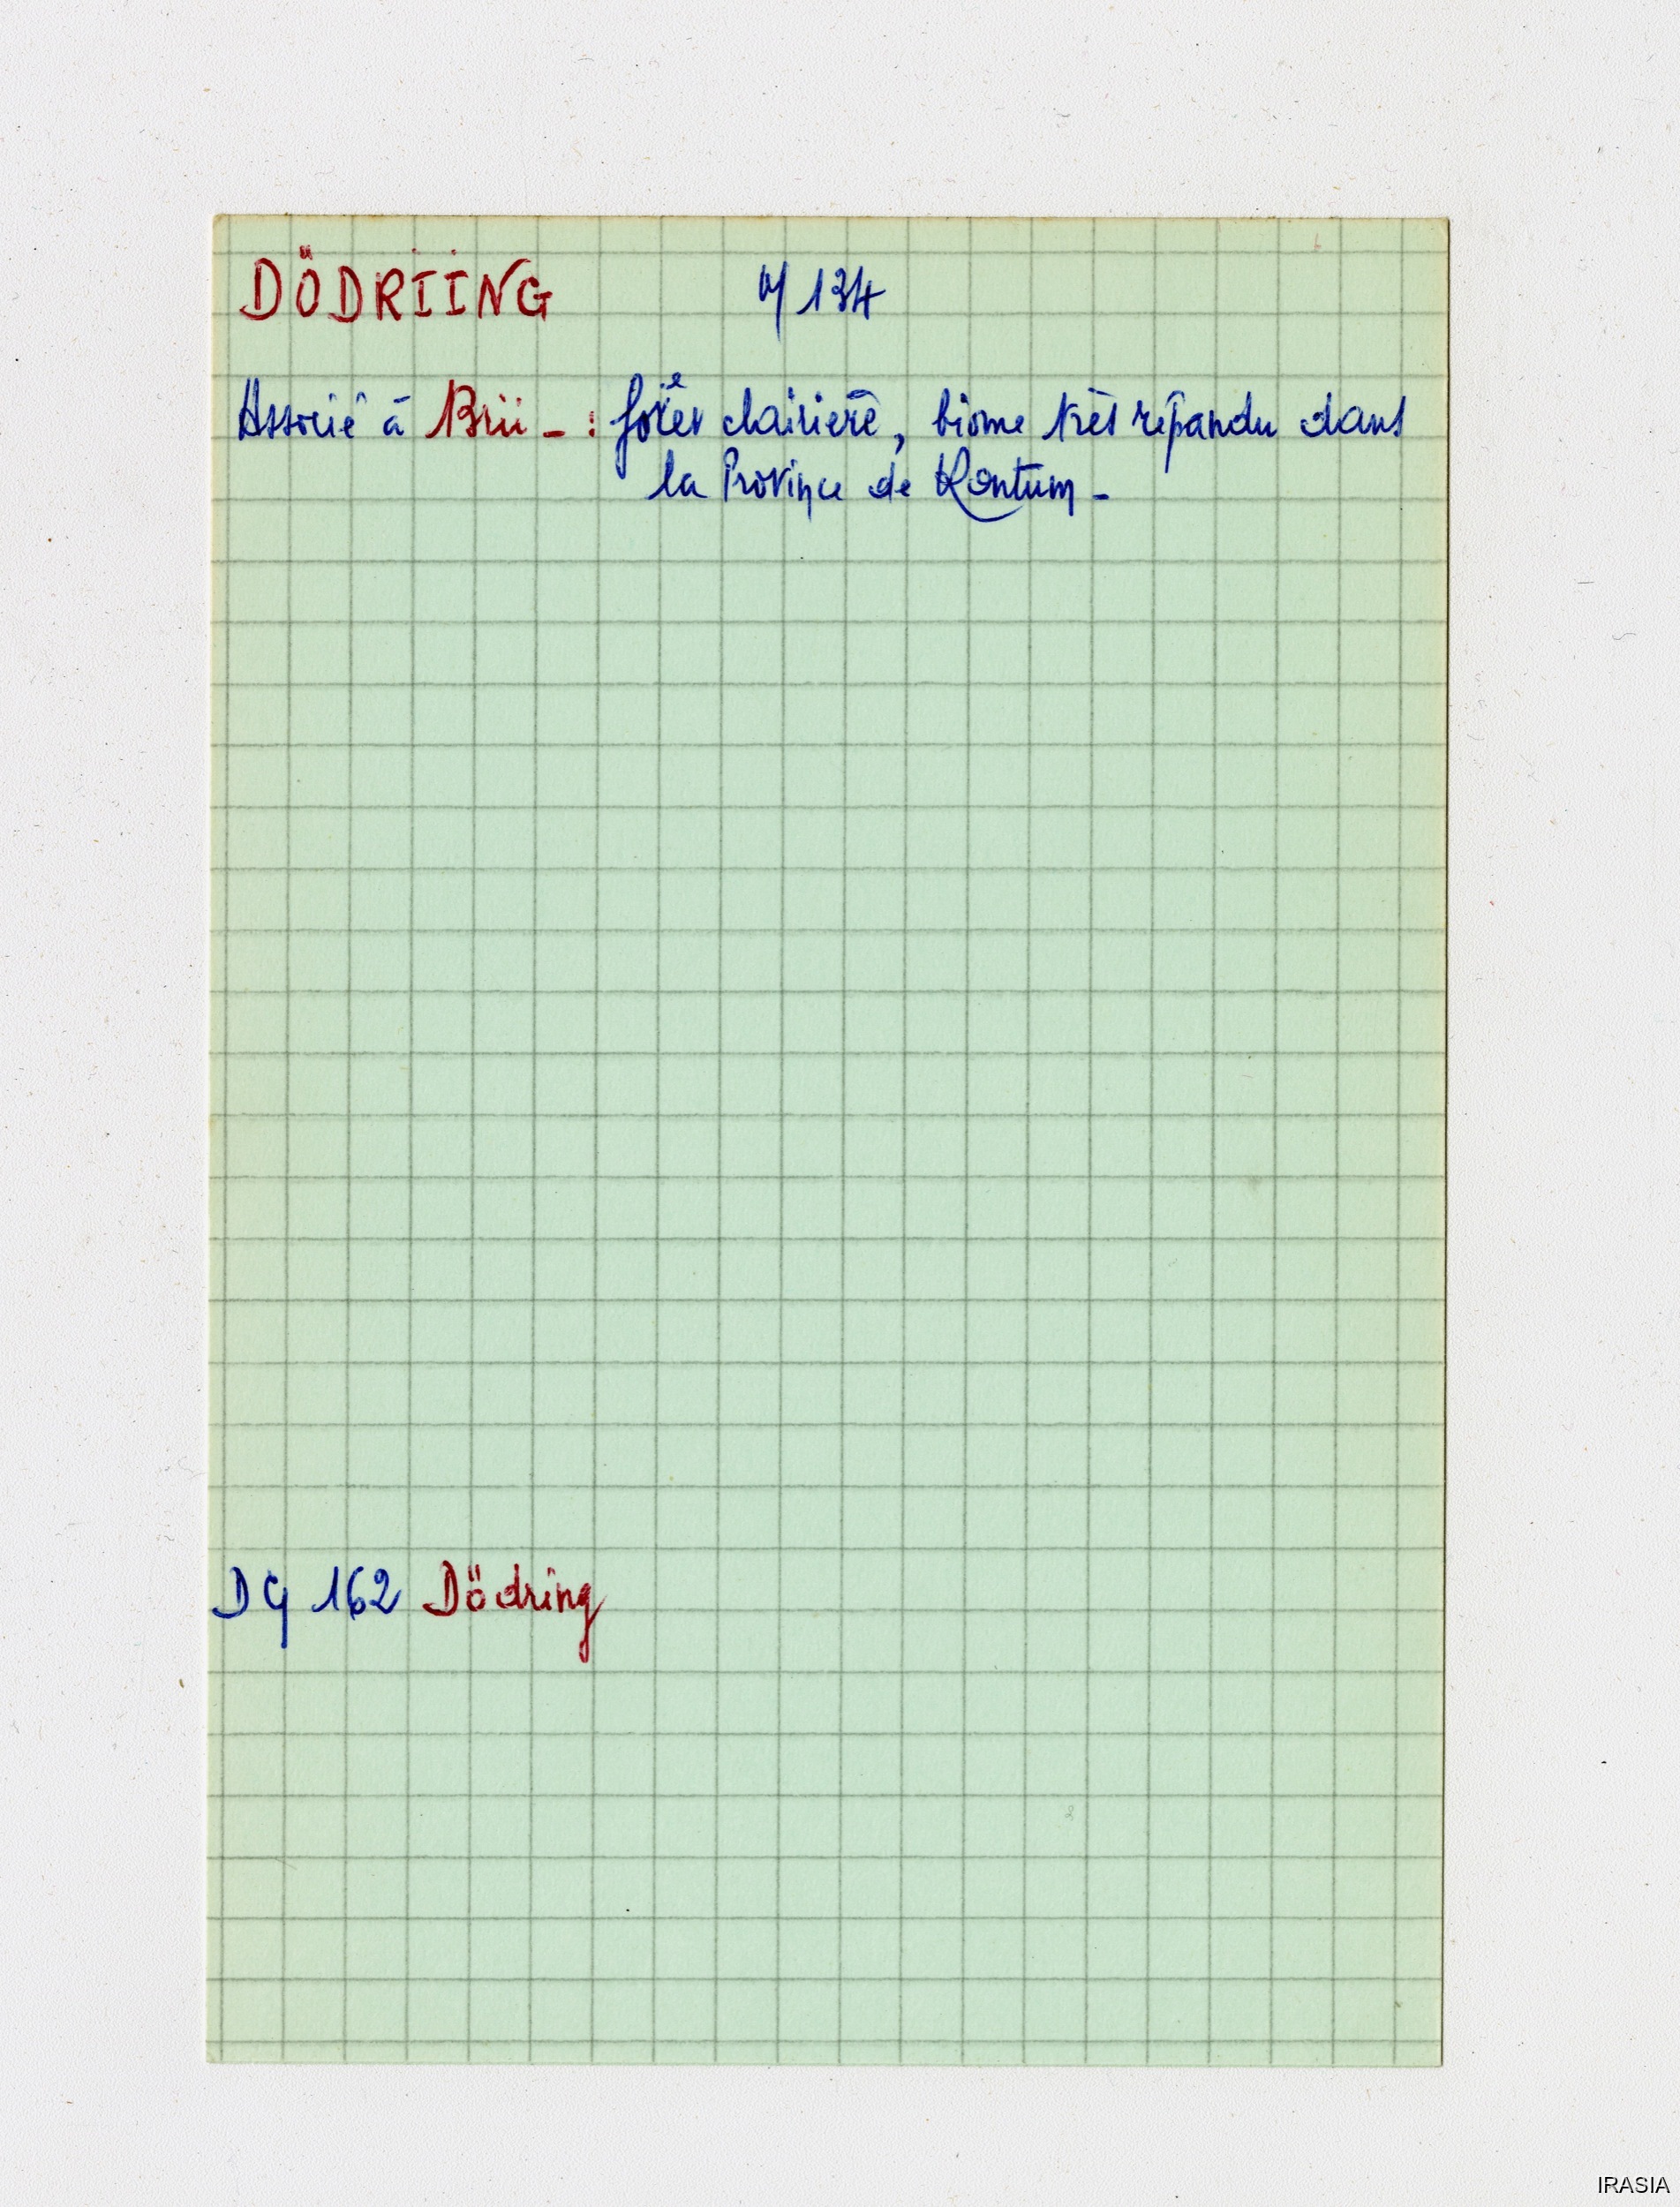 DÖDRIING M 134
Associé à Brii - : forêt clairière, biome très répandu dans
la Province de Kontum -
DG 162 Dödring
IRASIA